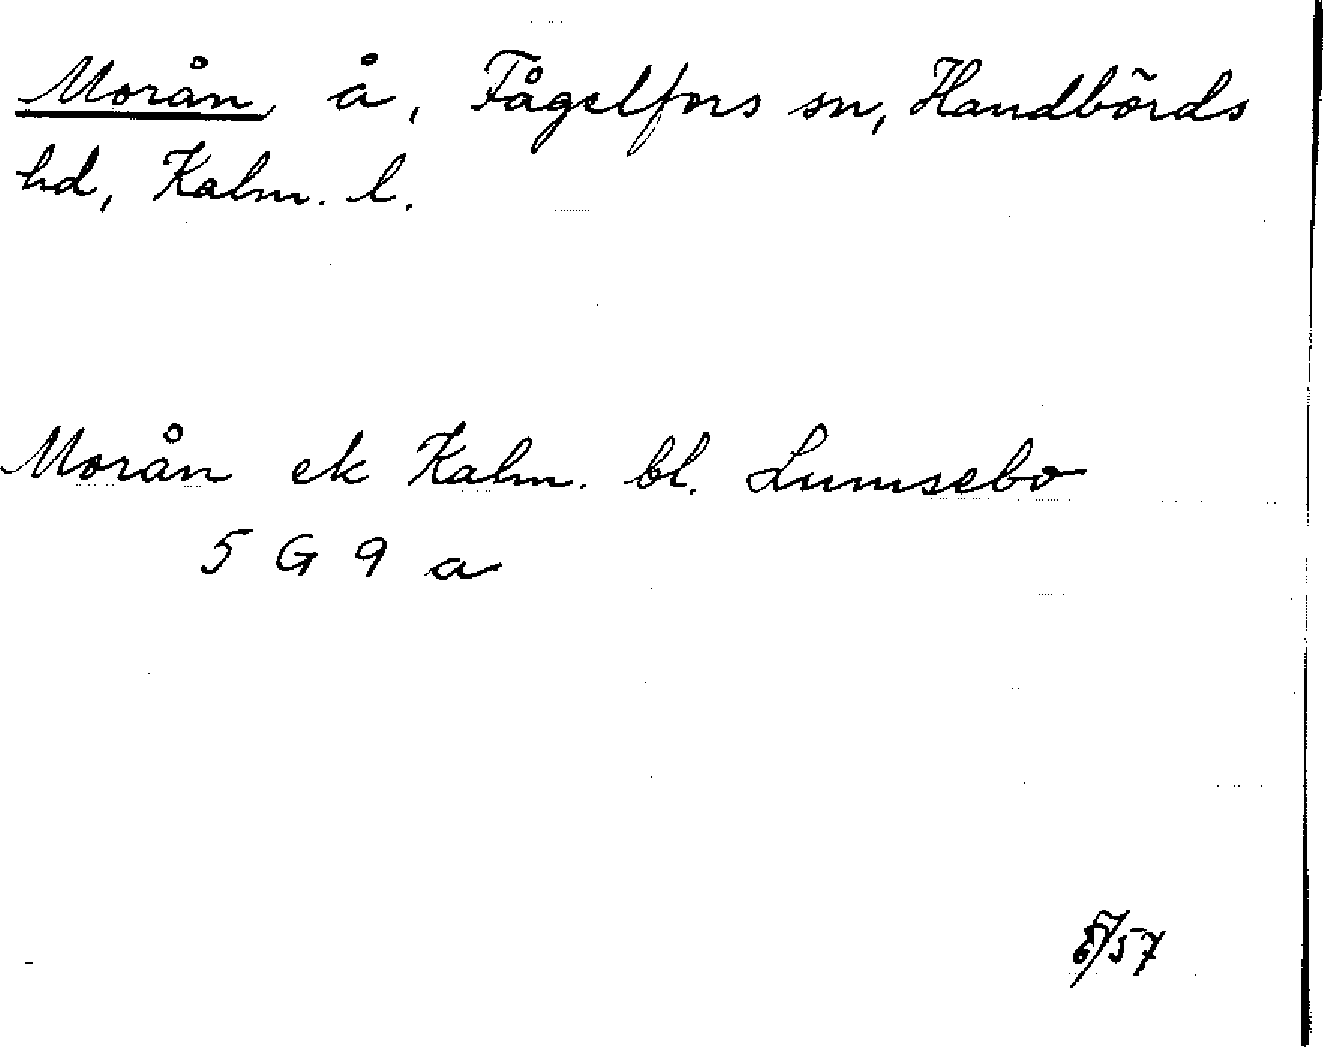 Morån, å, Fågelfors sn, Handbörds
hd, Kalm. l.
Morån ek Kalm. bl. Lumsebo
5 G 9 a